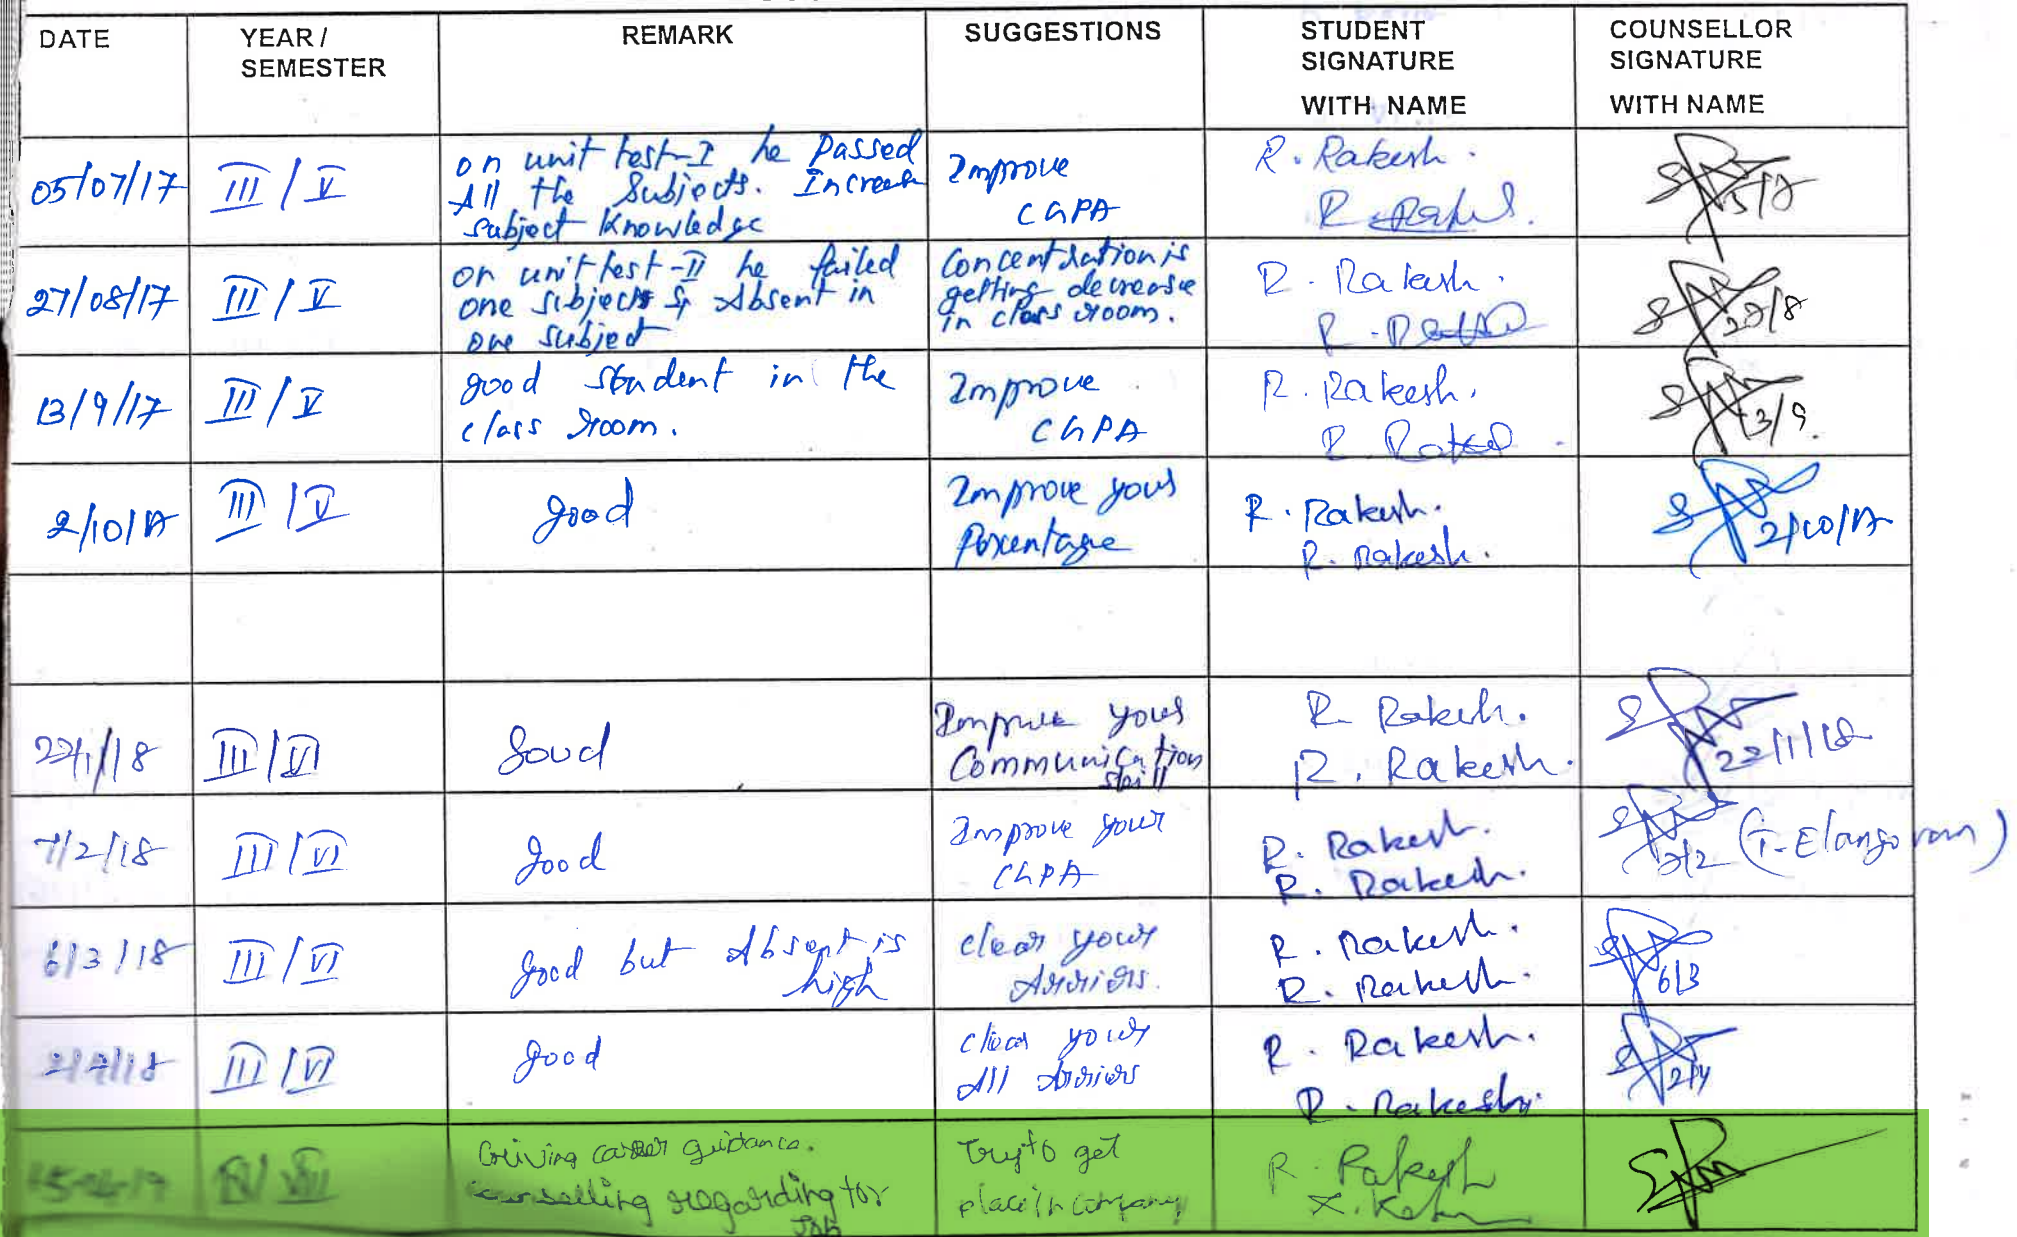 DATE
YEAR /
SEMESTER
REMARK
SUGGESTIONS
STUDENT
SIGNATURE
WITH NAME
COUNSELLOR
SIGNATURE
WITH NAME
05/07/17
III / V
on unit test-I he Passed
All the Subjects. Increase
Subject Knowledge
Improve
CGPA
R. Rakesh.
5/7
27/08/17
III / V
on unit test-II he failed
one subjects & Absent in
one subject
Concentration is
getting decrease
in class room.
R. Rakesh.
27/8
13/9/17
III / V
good student in the
class room.
Improve
CGPA
R. Rakesh.
13/9.
2/10/17
III / V
good
Improve your
Percentage
R. Rakesh.
R. Rakesh.
2/10/17
22/1/18
III / VI
Good
Improve your
Communication
skill
R. Rakesh.
R. Rakesh.
22/1/18
7/2/18
III / VI
good
Improve your
CGPA
R. Rakesh.
R. Rakesh.
7/2 (T. Elangovan)
6/3/18
III / VI
good but Absent is
high
clear your
Arriers.
R. Rakesh.
R. Rakesh.
6/3
III / VI
good
clear your
All Arriers
R. Rakesh.
R. Rakesh.
2/4
Giving career guidance.
counselling regarding for
Job
Try to get
place in company
R. Rakesh